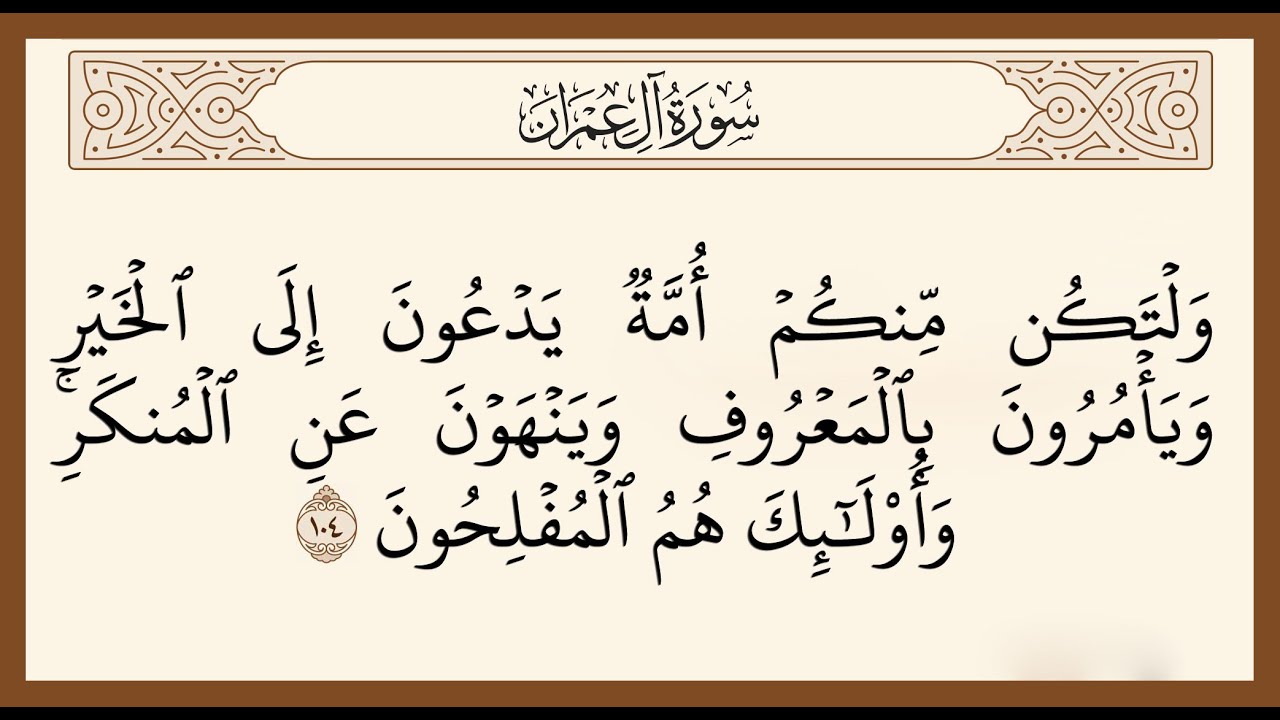 سُورَةُ آلِ عِمْرَانَ
وَلۡتَكُن مِّنكُمۡ أُمَّةٞ يَدۡعُونَ إِلَى ٱلۡخَيۡرِ
وَيَأۡمُرُونَ بِٱلۡمَعۡرُوفِ وَيَنۡهَوۡنَ عَنِ ٱلۡمُنكَرِۚ
وَأُوْلَٰٓئِكَ هُمُ ٱلۡمُفۡلِحُونَ ١٠٤